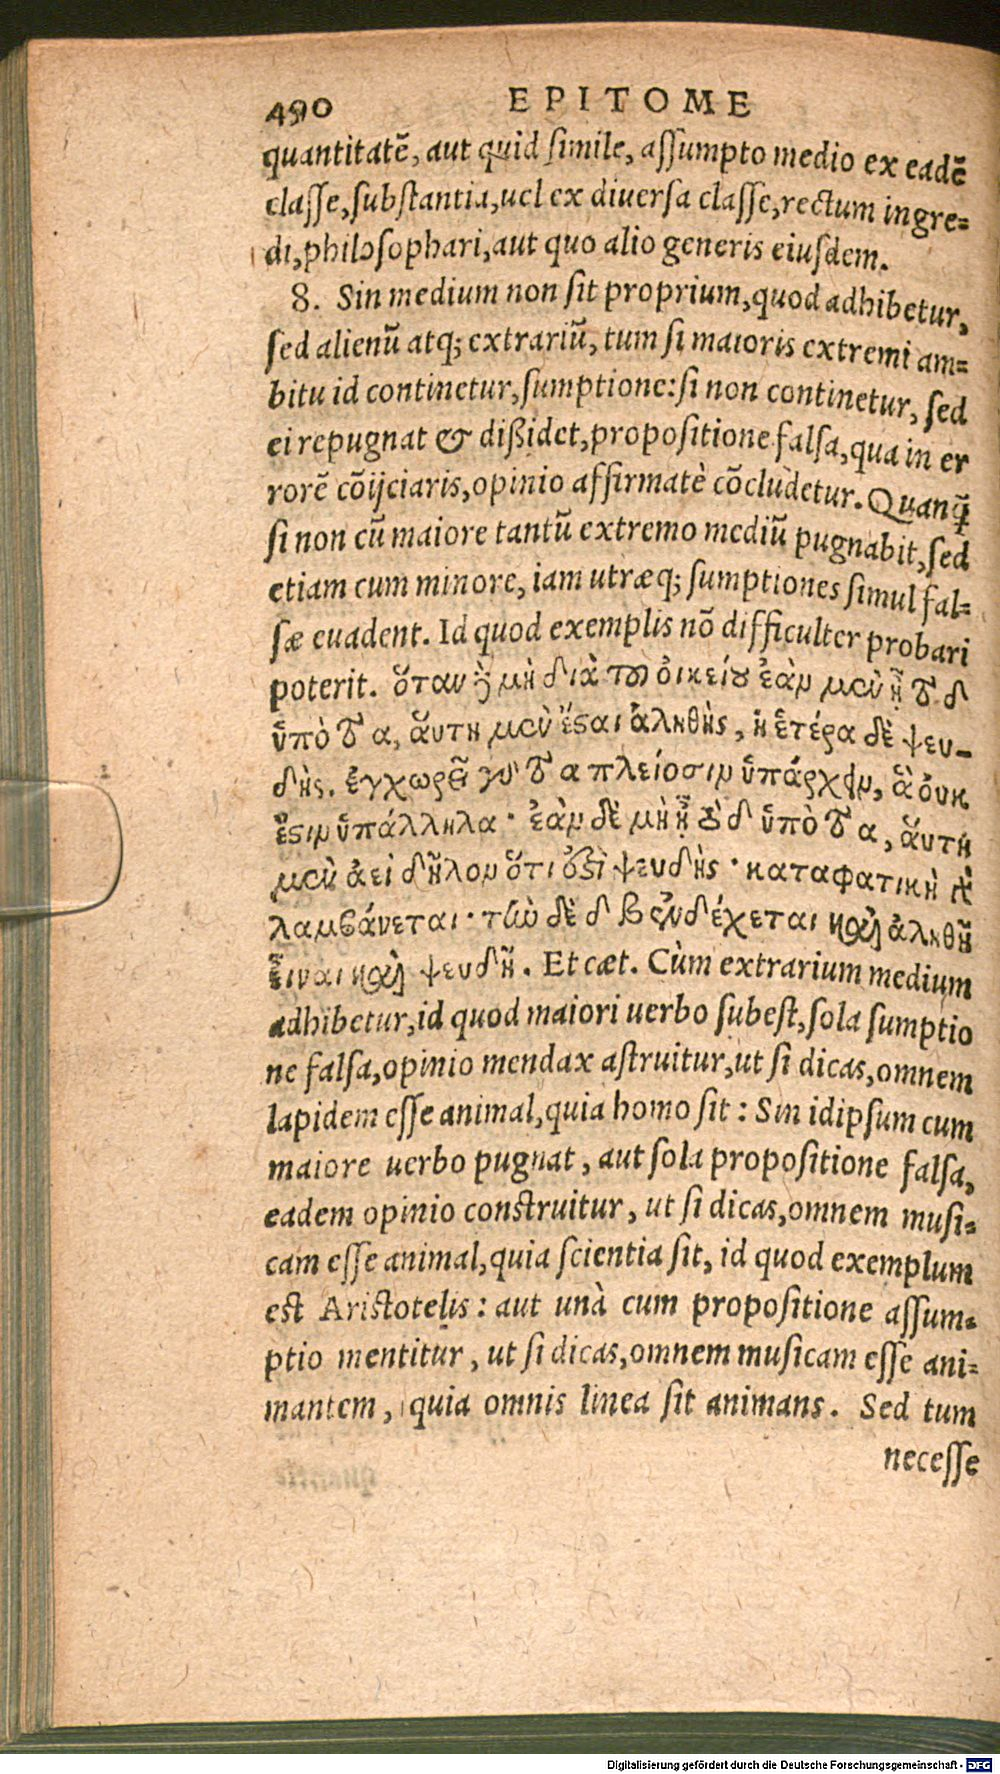 490 EPITOME
quantitatẽ, aut quid simile, assumpto medio ex eadẽ
classe, substantia, uel ex diuersa classe, rectum ingre=
di, philosophari, aut quo alio generis eiusdem.
8. Sin medium non sit proprium, quod adhibetur,
sed alienũ atq; extrariũ, tum si maioris extremi am=
bitu id continetur, sumptione: si non continetur, sed
ei repugnat & dißidet, propositione falsa, qua in er
rorẽ cõijciaris, opinio affirmatè cõcludetur. Quanq̃
si non cũ maiore tantũ extremo mediũ pugnabit, sed
etiam cum minore, iam utræq; sumptiones simul fal=
sæ euadent. Id quod exemplis nõ difficulter probari
poterit. ὅταν ἢ μὴ διὰ τοῦ οἰκείου ἐὰν μὲν ᾖ τὸ δ
ὑπὸ τὸ α, αὕτη μὲν ἔσται ἀληθὴς, ἡ ἑτέρα δὲ ψευ-
δής. ἐγχωρεῖ γὰρ τὸ α πλείοσιν ὑπάρχειν, ἃ οὐκ
ἔστιν ὑπάλληλα · ἐὰν δὲ μὴ ᾖ τὸ δ ὑπὸ τὸ α, αὕτη
μὲν ἀεὶ δῆλον ὅτι ἐστὶ ψευδής · καταφατικὴ γὰρ
λαμβάνεται · τὴν δὲ δ β ἐνδέχεται καὶ ἀληθῆ
εἶναι καὶ ψευδῆ. Et cæt. Cùm extrarium medium
adhibetur, id quod maiori uerbo subest, sola sumptio
ne falsa, opinio mendax astruitur, ut si dicas, omnem
lapidem esse animal, quia homo sit : Sin idipsum cum
maiore uerbo pugnat, aut sola propositione falsa,
eadem opinio construitur, ut si dicas, omnem musi=
cam esse animal, quia scientia sit, id quod exemplum
est Aristotelis : aut unà cum propositione assum=
ptio mentitur, ut si dicas, omnem musicam esse ani=
mantem, quia omnis linea sit animans. Sed tum
necesse
Digitalisierung gefördert durch die Deutsche Forschungsgemeinschaft - DFG